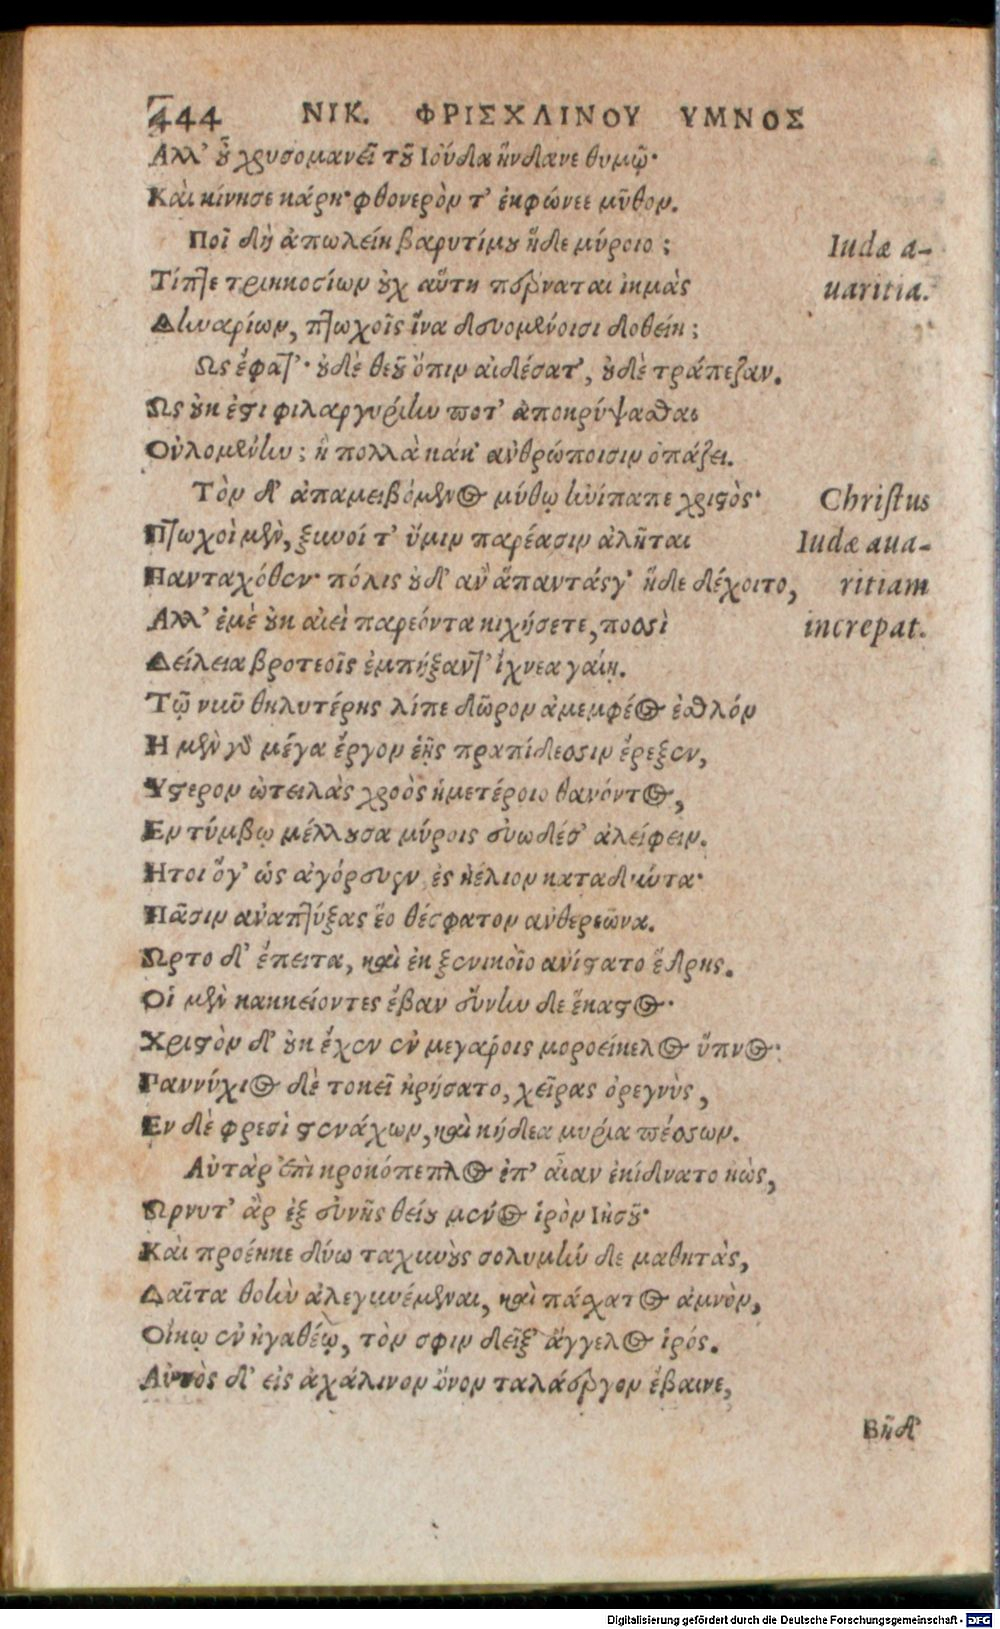 444 ΝΙΚ. ΦΡΙΣΧΛΙΝΟΥ ΥΜΝΟΣ
Ἀλλ' οὗ χρυσομανεῖ τοῦ Ἰούδα ἥνδανε θυμῷ·
Καὶ κίνησε κάρη· φθονερὸν τ' ἐκφώνεε μῦθον.
Ποῖ δὴ ἀπωλείη βαρυτίμου ἥδε μύροιο;
Iudæ a-
Τίπτε τριηκοσίων οὐχ αὕτη πέρναται ἰκμὰς
uaritia.
Δηναρίων, πτωχοῖς ἵνα δευομένοισι δοθείη;
Ως ἔφατ'· οὐδὲ θεοῦ ὄπιν αἰδέσατ', οὐδὲ τράπεζαν.
Ως οὐκ ἐστὶ φιλαργυρίην ποτ' ἀποκρύψασθαι
Οὐλομένην; ἣ πολλὰ κάκ' ἀνθρώποισιν ὀπάζει.
Τὸν δ' ἀπαμειβόμενος μύθῳ ἠνίπαπε χριστὸς·
Christus
Πτωχοὶ μὲν, ξεινοί τ' ὔμιν παρέασιν ἀλῆται
Iudæ aua-
Πανταχόθεν· πόλις οὐδ' ἂν ἅπαντάς γ' ἥδε δέχοιτο,
ritiam
Ἀλλ' ἐμὲ οὐκ αἰεὶ παρεόντα κιχήσετε, ποσσὶ
increpat.
Δείλεια βροτεοῖς ἐμπήξαντ' ἴχνεα γαίῃ.
Τῷ νιοῦ θηλυτέρης λίπε δῶρον ἀμεμφέος ἐσθλόν
Η μὲν γὸ μέγα ἔργον ἑῇς πραπίδεσσιν ἔρεξεν,
Υστερον ὠτειλὰς χροὸς ἡμετέροιο θανόντος,
Εν τύμβῳ μέλλουσα μύροις εὐωδέσ' ἀλείφειν.
Ητοι ὅγ' ὡς ἀγόρευεν ἐς ἠέλιον καταδύντα·
Πᾶσιν ἀναπτύξας ἕο θέσφατον ἀνθερεῶνα.
Ωρτο δ' ἔπειτα, καὶ ἐκ ξενικοῖο ἀνίστατο ἕδρης.
Οἱ μὲν κακκείοντες ἔβαν εὔνην δε ἕκαστος·
Χριστὸν δ' οὐκ ἔχεν ἐν μεγάροις μοροείκελος ὕπνος·
Παννύχιος δὲ τοκεῖ ἠρήσατο, χεῖρας ὀρεγνὺς,
Εν δὲ φρεσὶ στενάχων, καὶ κήδεα μυρία πέσσων.
Αὐτὰρ ἐπὶ κροκόπεπλος ἐπ' αἶαν ἐκίδνατο ἠὼς,
Ωρνυτ' ἂρ ἐξ εὐνῆς θείου μένος ἱρὸν Ἰησοῦ·
Καὶ προέηκε δύω ταχινοὺς σολυμήν δε μαθητὰς,
Δαῖτα θοὴν ἀλεγυνέμεναι, καὶ πάσχατος ἀμνὸν,
Οἴκῳ ἐν ἠγαθέῳ, τὸν σφιν δεῖξ' ἄγγελος ἱρός.
Αὐτὸς δ' εἰς ἀχάλινον ὄνον ταλάεργον ἔβαινε,
Βῆ δ'
Digitalisierung gefördert durch die Deutsche Forschungsgemeinschaft - DFG